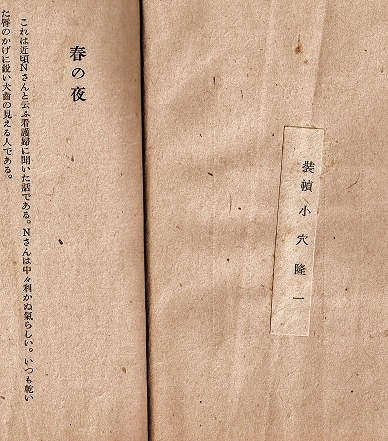 裝幀小穴隆一
春の夜
これは近頃Nさんと云ふ看護婦に聞いた話である。Nさんは中々利かぬ氣らしい。いつも乾い
た脣のかげに鋭い犬齒の見える人である。